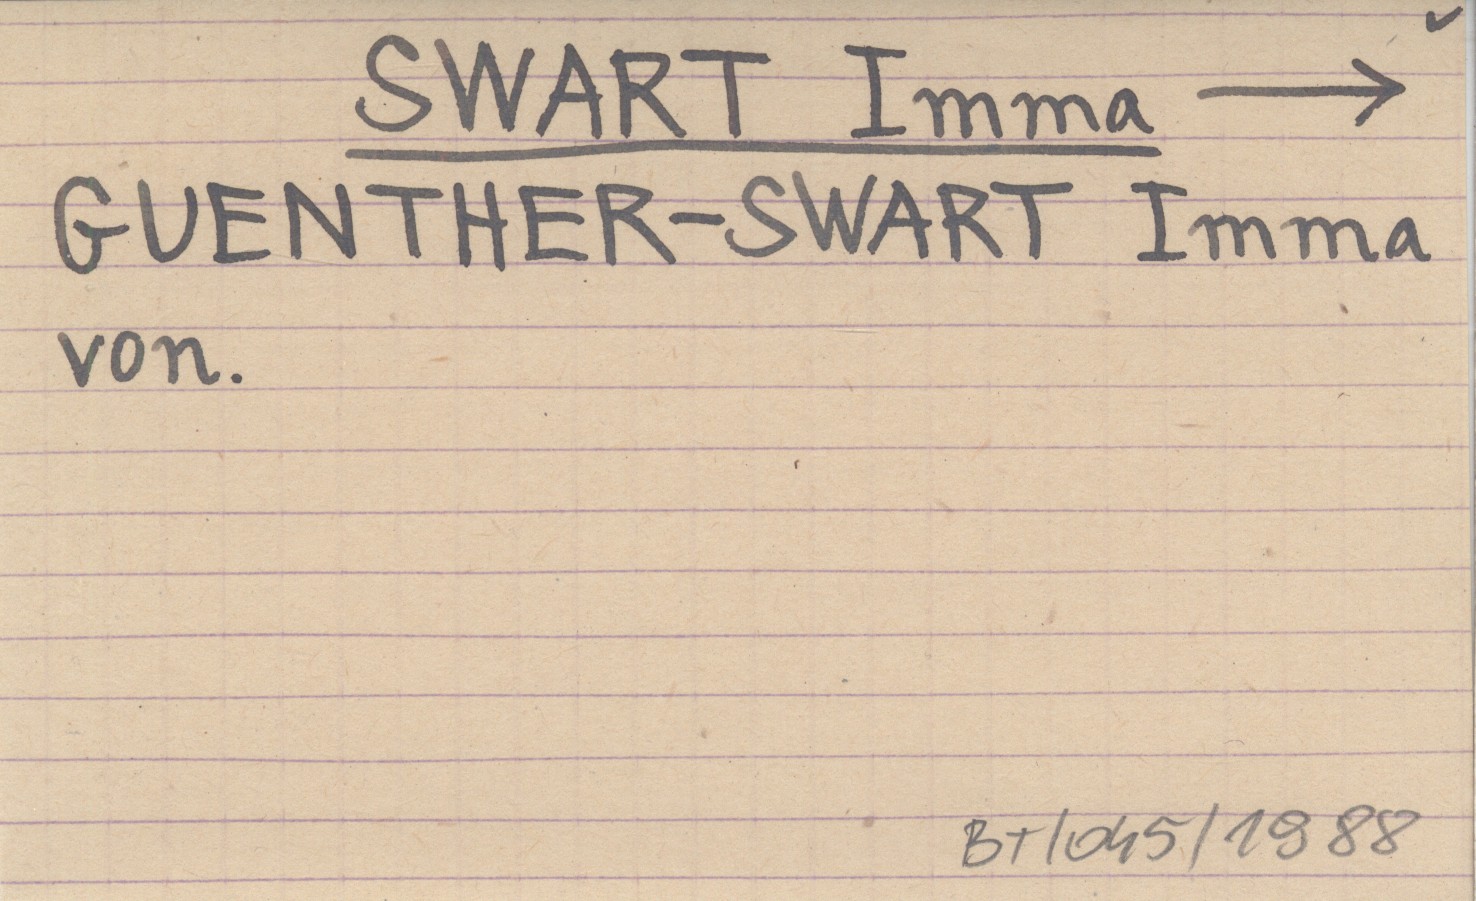 SWART Imma →
GUENTHER-SWART Imma
von.
BT/045/1988